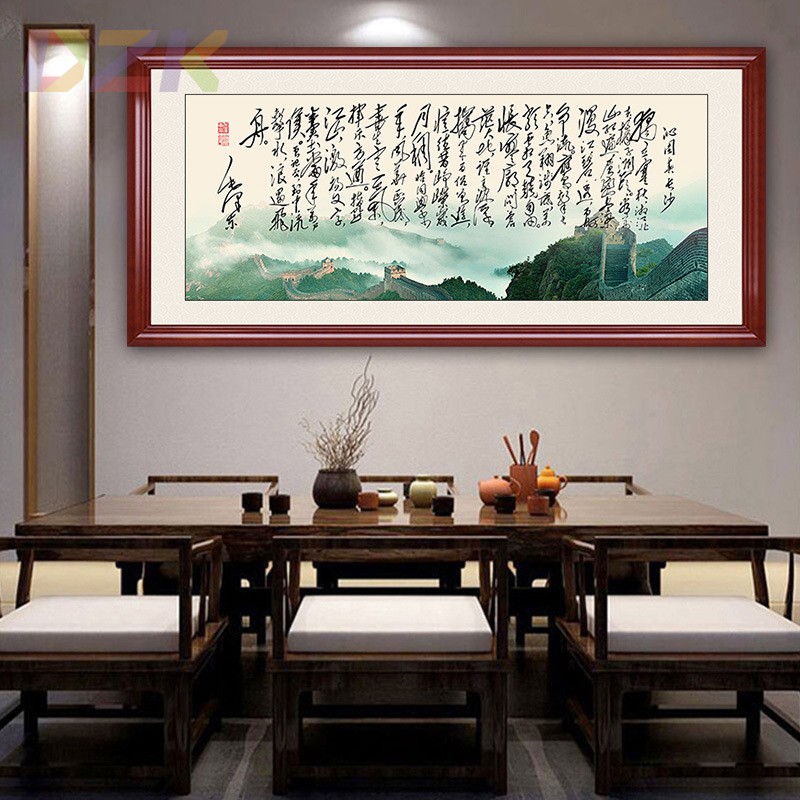 DZK
沁园春长沙
独立寒秋湘江北
去橘子洲头看万
山红遍层林尽染
漫江碧透百舸
争流鹰击长空
怅寥廓问苍
茫大地谁主沉浮
携来百侣曾游
忆往昔峥嵘岁
月稠恰同学少
年风华正茂
书生意气
挥斥方遒指点
江山激扬文字
粪土当年万户
侯曾记否到中流
击水浪遏飞
舟
毛泽东